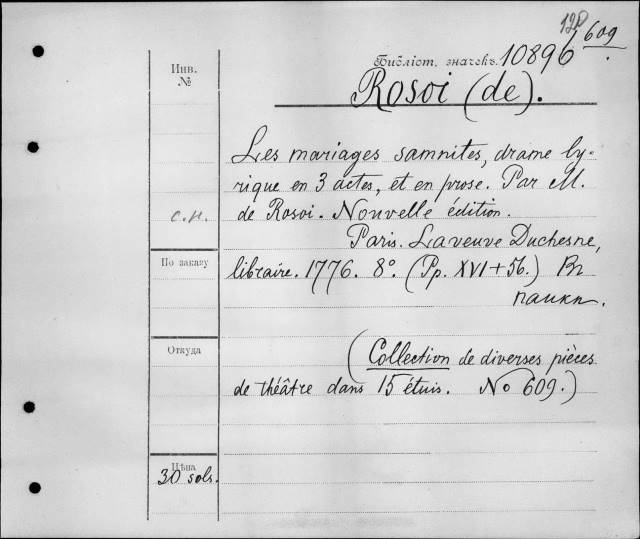 12D
Библіот. значекъ. 10896/609.
Инв.
№
Rosoi (de).
Les mariages samnites, drame ly-
rique en 3 actes, et en prose. Par M.
с.п.
de Rosoi. Nouvelle édition.
Paris. La veuve Duchesne,
По заказу
libraire. 1776. 8°. (Pp. XVI + 56.) Въ
папкѣ.
Откуда
(Collection de diverses pièces
de théâtre dans 15 étuis. No 609.)
Цѣна
30 sols.